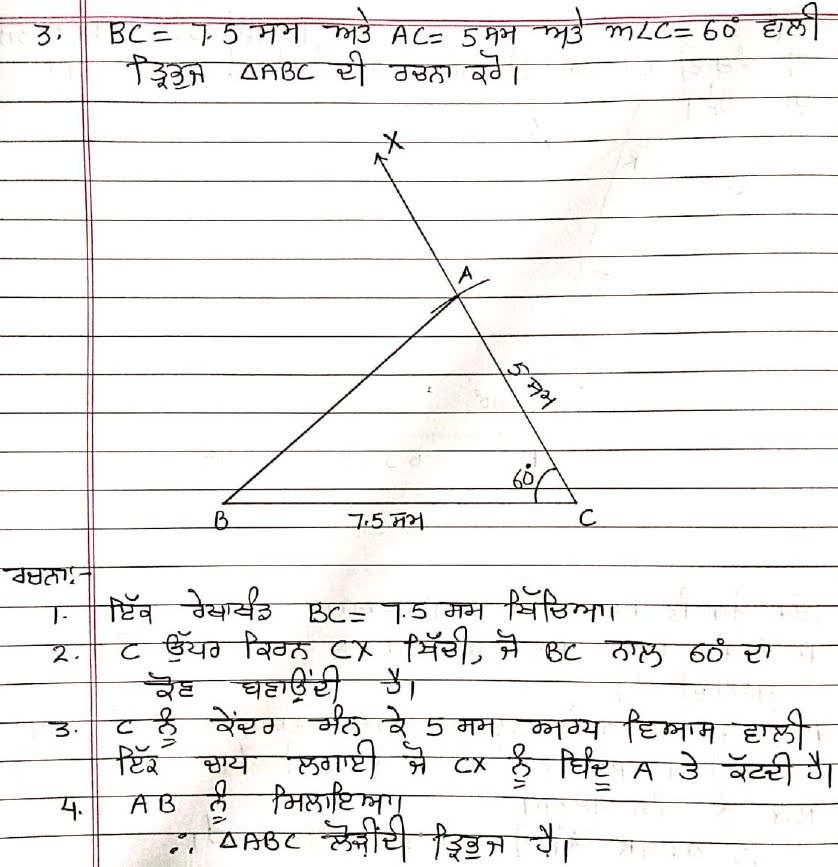 3. BC = 7.5 ਸਮ ਅਤੇ AC = 5 ਸਮ ਅਤੇ m∠C = 60° ਵਾਲੀ
ਤ੍ਰਿਭੁਜ ΔABC ਦੀ ਰਚਨਾ ਕਰੋ।
X
A
5 ਸਮ
60°
B 7.5 ਸਮ C
ਰਚਨਾ:-
1. ਇੱਕ ਰੇਖਾਖੰਡ BC = 7.5 ਸਮ ਖਿੱਚਿਆ।
2. C ਉੱਪਰ ਕਿਰਨ CX ਖਿੱਚੀ, ਜੋ BC ਨਾਲ 60° ਦਾ
ਕੋਣ ਬਣਾਉਂਦੀ ਹੈ।
3. C ਨੂੰ ਕੇਂਦਰ ਮੰਨ ਕੇ 5 ਸਮ ਅਰਧ ਵਿਆਸ ਵਾਲੀ
ਇੱਕ ਚਾਪ ਲਗਾਈ ਜੋ CX ਨੂੰ ਬਿੰਦੂ A ਤੇ ਕੱਟਦੀ ਹੈ।
4. AB ਨੂੰ ਮਿਲਾਇਆ।
∴ ΔABC ਲੋੜੀਂਦੀ ਤ੍ਰਿਭੁਜ ਹੈ।